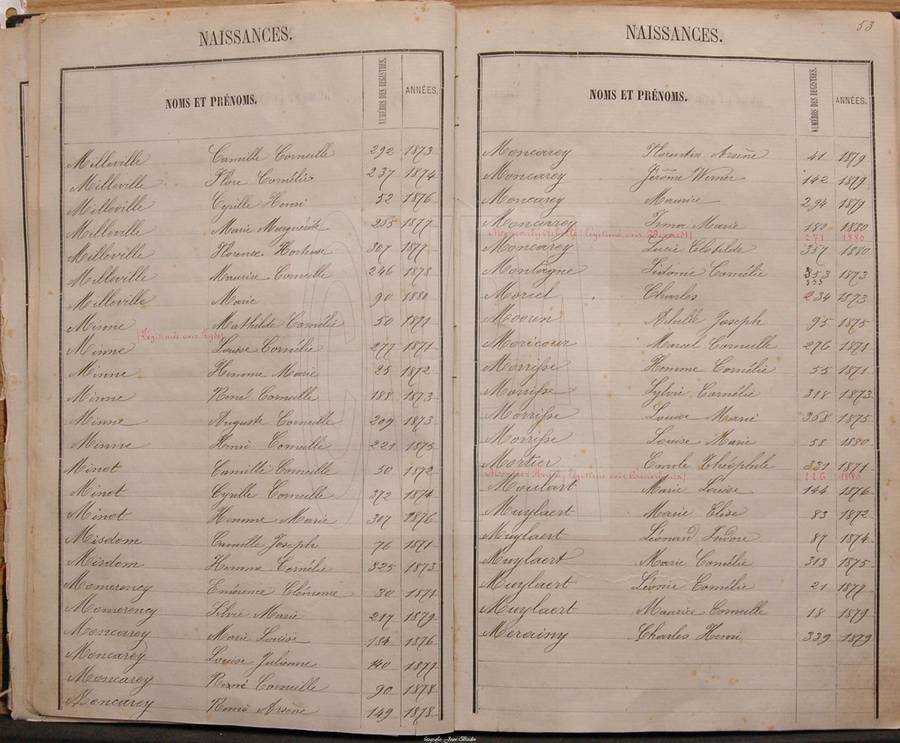 NAISSANCES.
NOMS ET PRÉNOMS. NUMÉROS DES REGISTRES. ANNÉES.
Milleville Camille Corneille 292 1873
Milleville Flore Cornélie 237 1874
Milleville Cyrille Henri 52 1876
Milleville Marie Marguérite 255 1877
Milleville Florence Hortense 307 1877
Milleville Maurice Corneille 246 1878
Milleville Marie 90 1880
Minne Mathilde Cornélie 50 1871
Minne Louise Cornélie 277 1871
Minne Hemme Marie 25 1872
Minne René Corneille 188 1873
Minne Auguste Corneille 209 1873
Minne Henri Corneille 221 1875
Minot Camille Corneille 50 1872
Minot Cyrille Corneille 372 1874
Minot Hemme Marie 307 1876
Misdom Camille Joseph 76 1871
Misdom Hemma Cornélie 325 1873
Momerency Emérence Clémence 30 1871
Momerency Silvie Marie 217 1879
Moncarey Marie Louise 184 1876
Moncarey Louise Julienne 140 1877
Moncarey René Corneille 90 1878
Moncarey Remi Arsène 149 1878
53
NAISSANCES.
NOMS ET PRÉNOMS. NUMÉROS DES REGISTRES. ANNÉES.
Moncarey Florentin Arsène 41 1879
Moncarey Jérôme Werner 142 1879
Moncarey Maurice 294 1879
Moncarey Irma Marie 180 1880
271 1880
Moncarey Lucie Clotilde 357 1880
Montagne Sidonie Cornélie 353 1873
Morcel Charles 234 1873
Achille Joseph 95 1875
Moricour Marcel Corneille 276 1871
Morrisse Hemme Cornélie 55 1871
Morrisse Sylvie Cornélie 318 1873
Morrisse Louise Marie 358 1875
Morrisse Louise Marie 58 1880
Mortier Emile Théophile 331 1871
226 1880
Moulart Marie Louise 144 1876
Muylaert Marie Elise 83 1872
Muylaert Léonard Isidore 87 1874
Muylaert Marie Cornélie 313 1875
Muylaert Léonie Cornélie 21 1877
Muylaert Maurice Corneille 18 1879
Charles Henri 339 1879